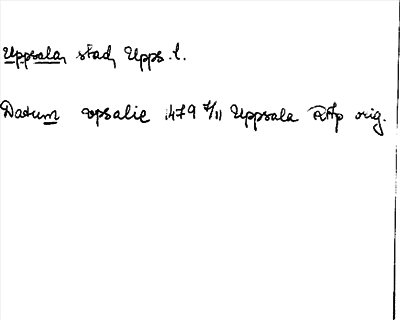 Uppsala, stad, Upps. l.
Datum vpsalie 1479 7/11 Uppsala RAp orig.